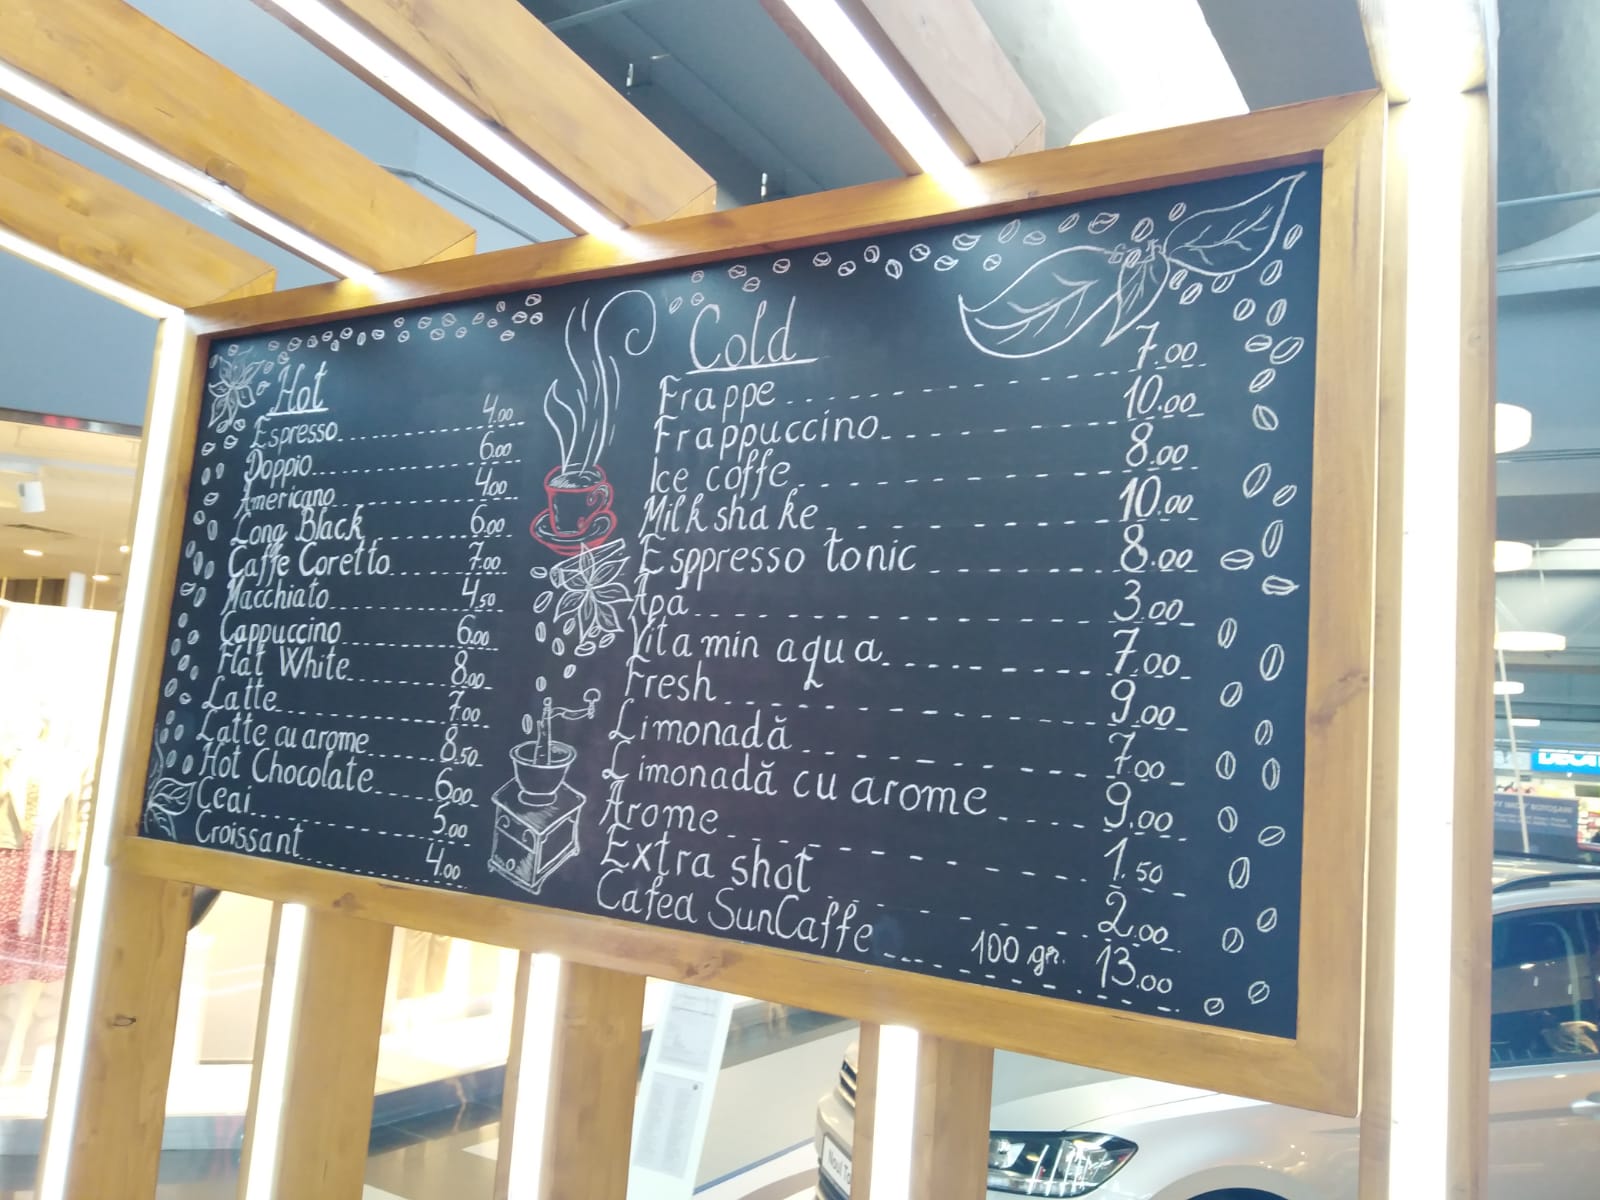 Hot
Espresso 4.00
Doppio 6.00
Americano 4.00
Long Black 6.00
Caffe Coretto 7.00
Macchiato 4.50
Cappuccino 6.00
Flat White 8.00
Latte 7.00
Latte cu arome 8.50
Hot Chocolate 6.00
Ceai 5.00
Croissant 4.00
Cold
Frappe 7.00
Frappuccino 10.00
Ice coffe 8.00
Milkshake 10.00
Esppresso tonic 8.00
Apă 3.00
Vitamin aqua 7.00
Fresh 9.00
Limonadă 7.00
Limonadă cu arome 9.00
Arome 1.50
Extra shot 2.00
Cafea SunCaffe 100 gr. 13.00
Noul